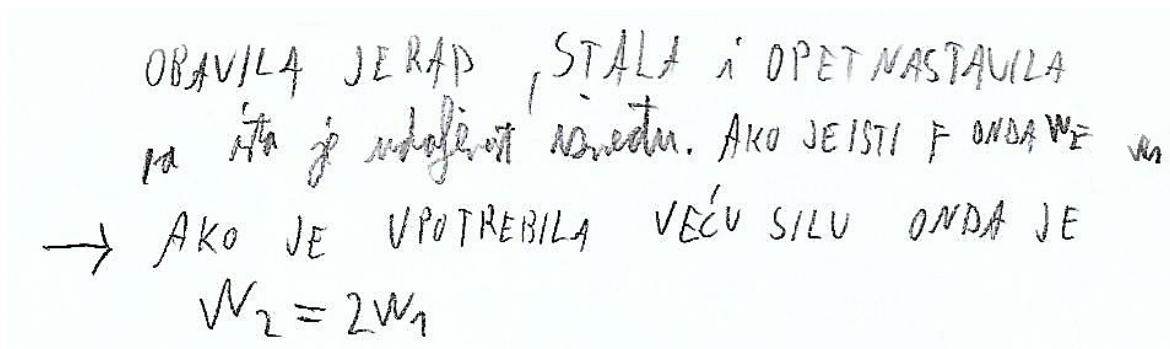 OBAVILA JE RAD, STALA i OPET NASTAVILA
pa ista je udaljenost između. AKO JE ISTI F ONDA W₂=
→ AKO JE UPOTREBILA VEĆU SILU ONDA JE
W₂ = 2W₁